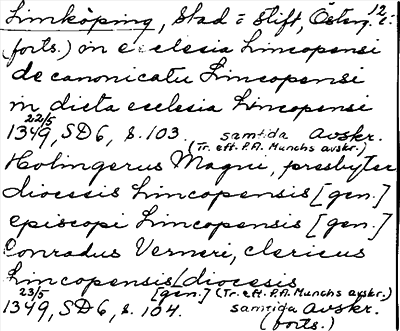 Linköping, Stad o Stift, Österg. 12.
(forts.) in ecclesia Lincopensi
de canonicatu Lincopensi
in dicta ecclesia Lincopensi
22/5
1349, SD6, s. 103. samtida Avskr.
(Tr. eft. P.A. Munchs avskr.)
Holmgerus Magni, presbyter
diocesis Lincopensis [gen.]
episcopi Lincopensis [gen.]
Conradus Verneri, clericus
Lincopensis/diocesis
23/5 [gen.] (Tr. eft. P.A. Munchs avskr.)
1349, SD6, s. 104. samtida Avskr.
(forts.)